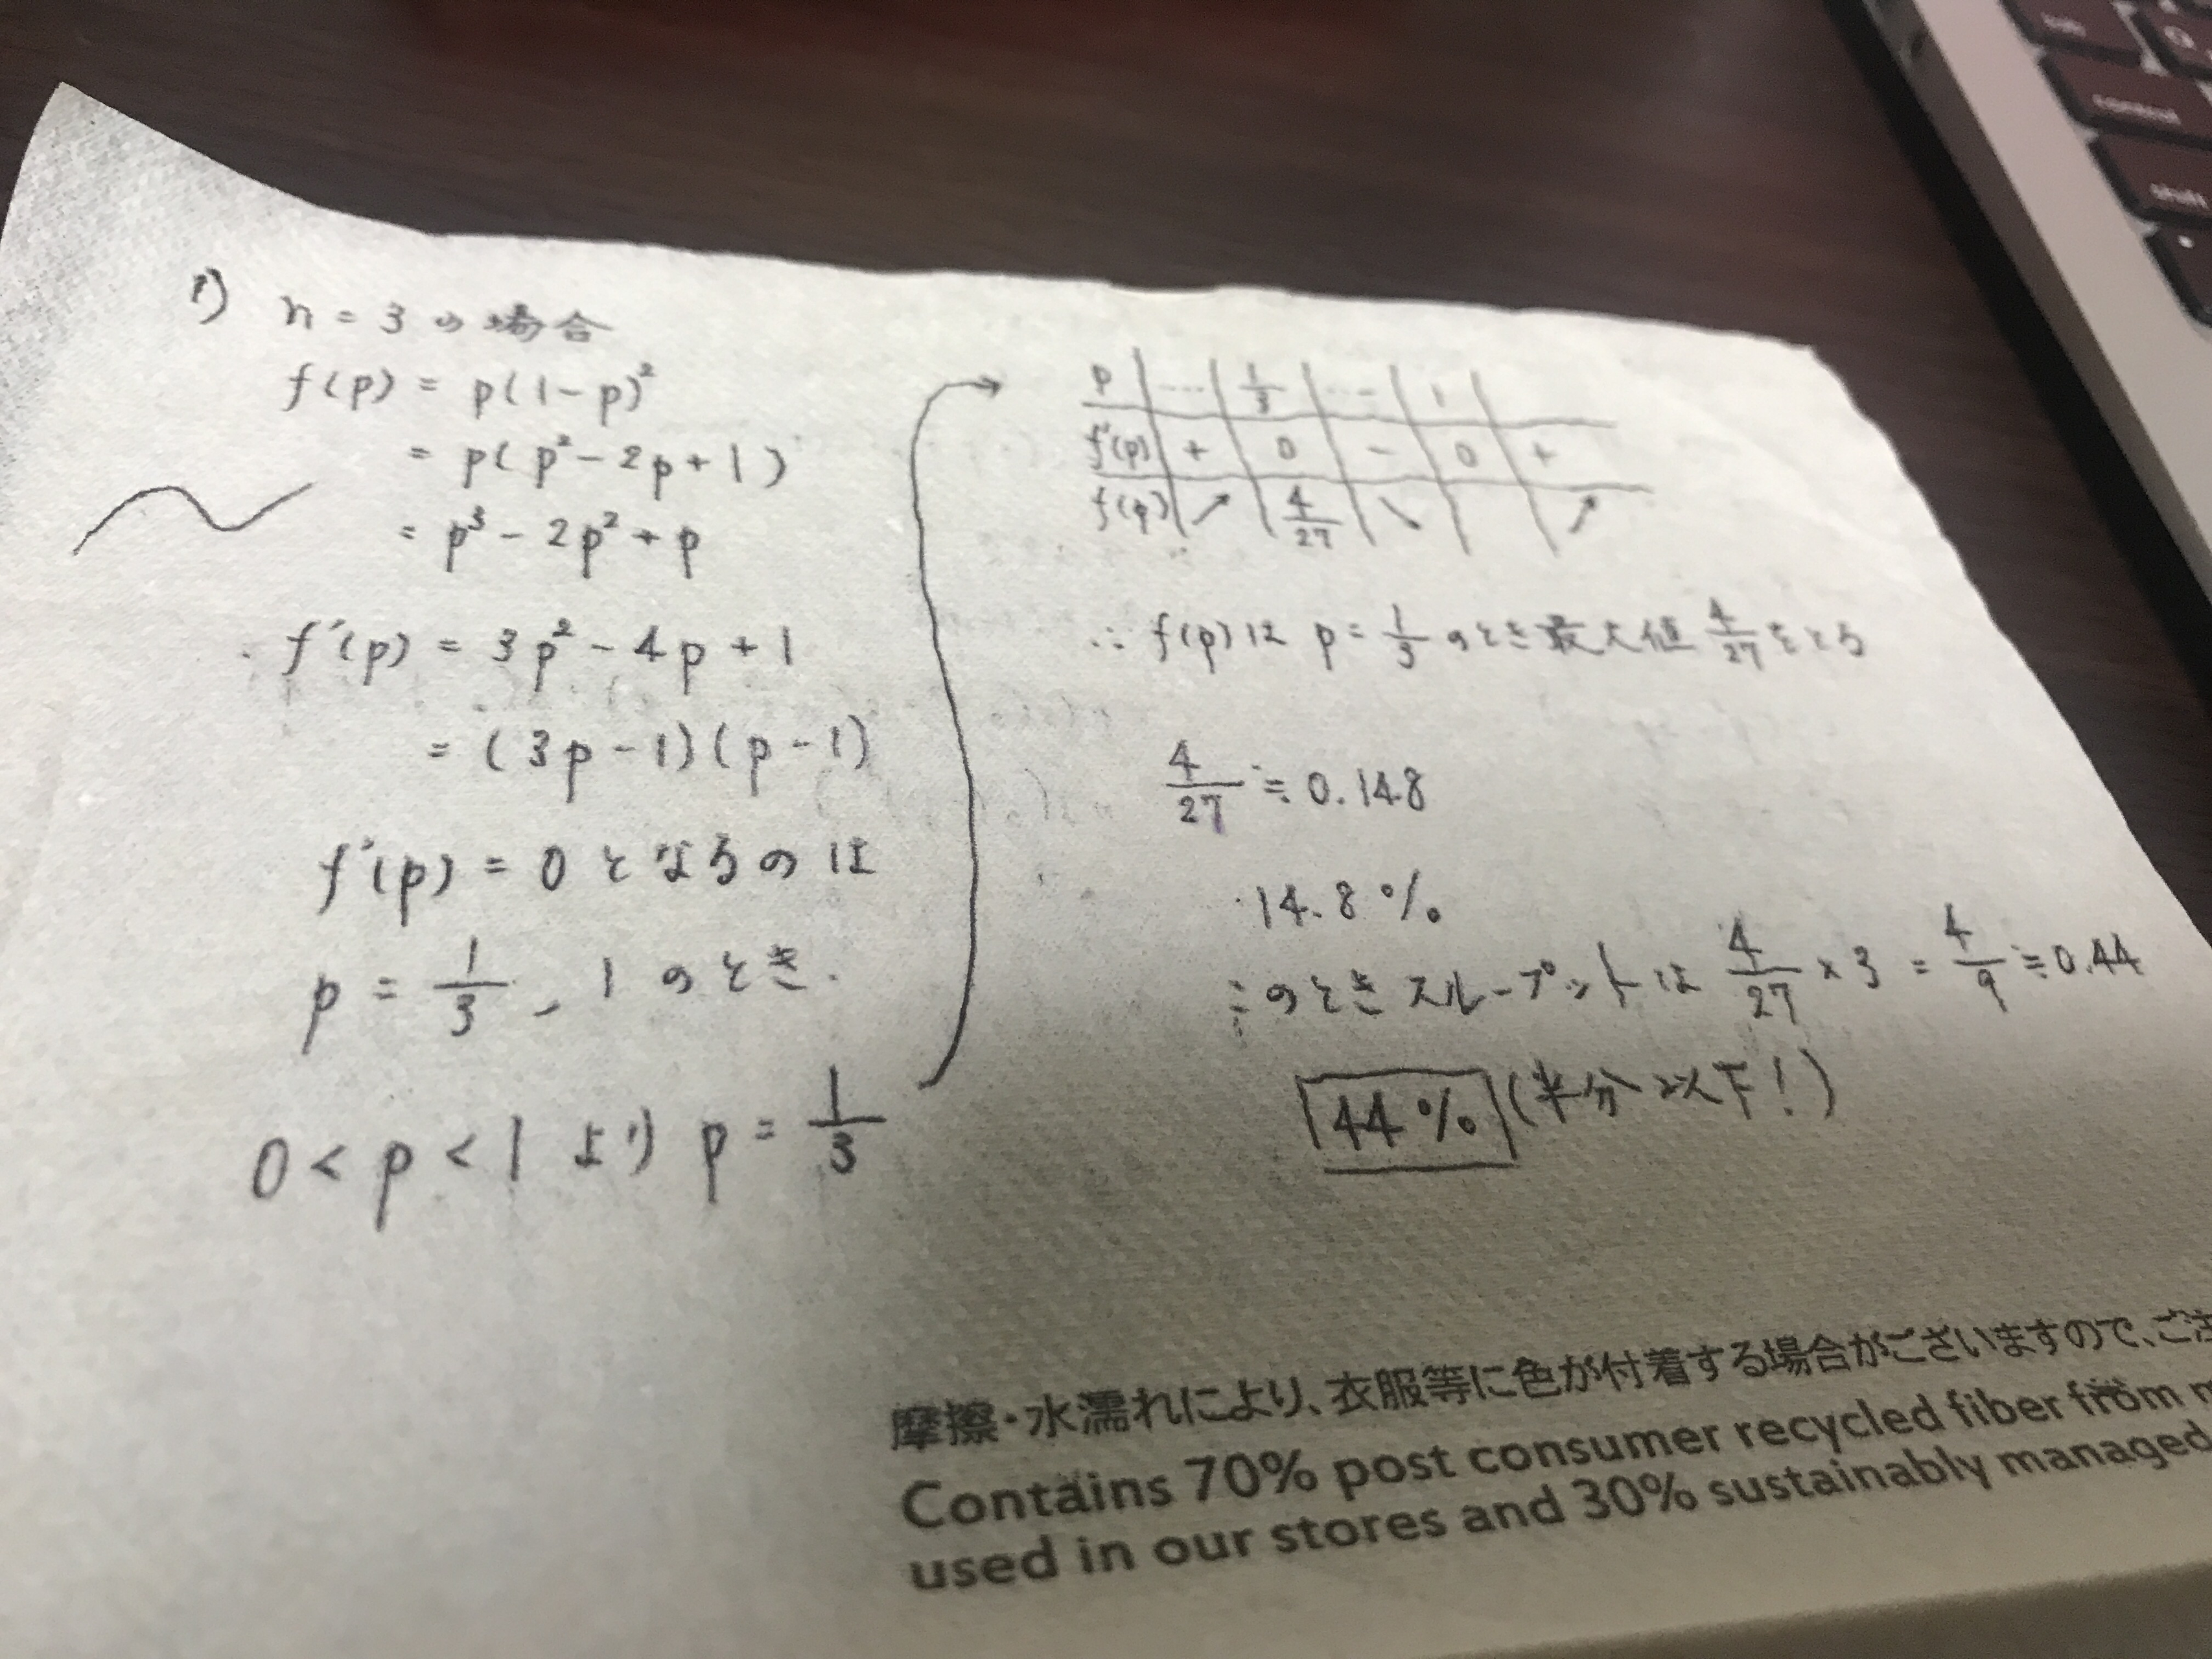 1) n = 3 の場合
f(p) = p(1-p)²
= p(p²-2p+1)
= p³-2p²+p
f'(p) = 3p²-4p+1
= (3p-1)(p-1)
f'(p) = 0 となるのは
p = 1/3, 1 のとき.
0 < p < 1 より p = 1/3
p … 1/3 … 1
f'(p) + 0 - 0 +
f(p) ↗ 4/27 ↘ ↗
∴ f(p) は p = 1/3 のとき最大値 4/27 をとる
4/27 ≒ 0.148
14.8%
このときスループットは 4/27 × 3 = 4/9 ≒ 0.44
44% (半分以下!)
摩擦・水濡れにより、衣服等に色が付着する場合がございますので、ご注
Contains 70% post consumer recycled fiber from m
used in our stores and 30% sustainably managed
control
shift